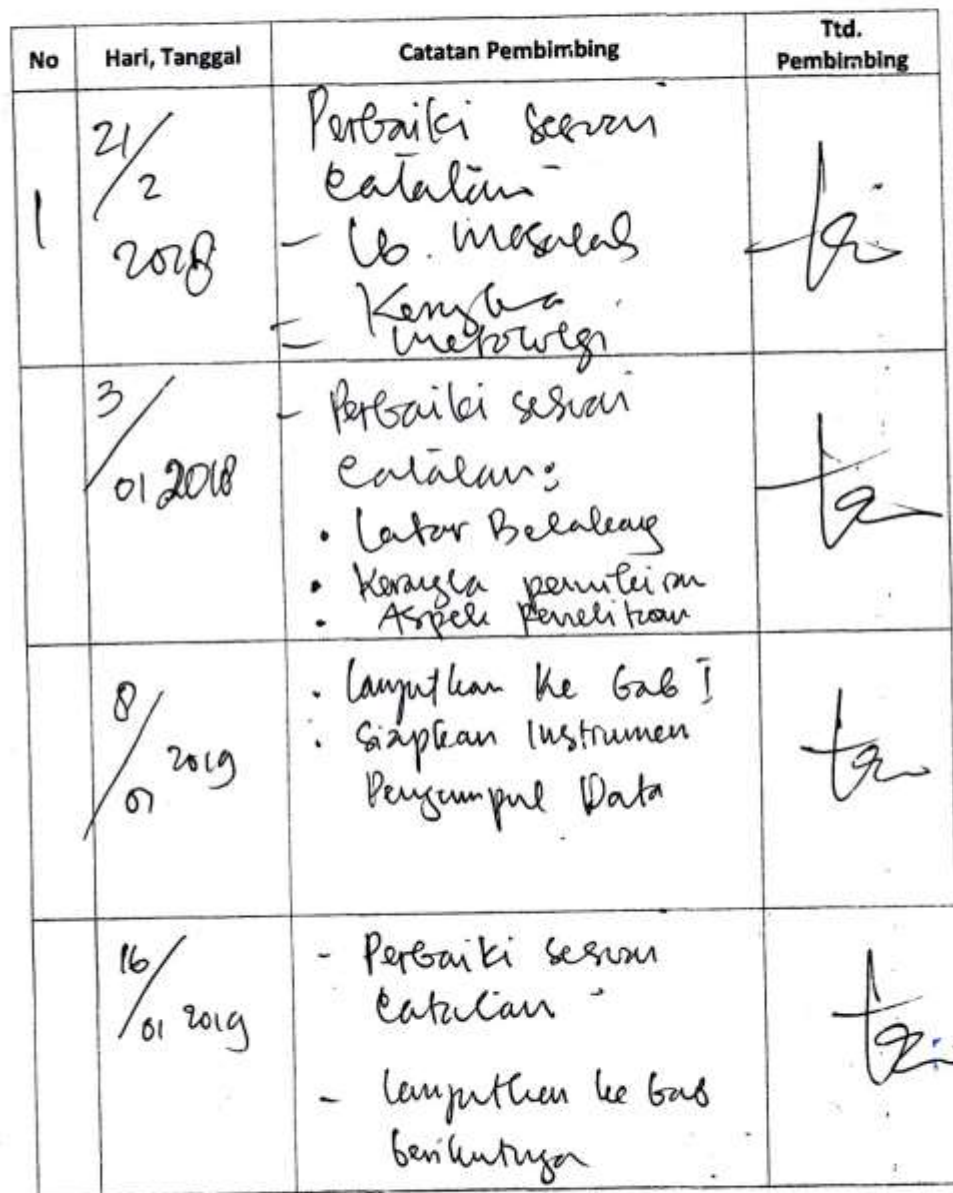 No Hari, Tanggal Catatan Pembimbing Ttd. Pembimbing
1 21/2 2018 Perbaiki sesuai
catatan
- Lb. masalah
- Kerangka
- metodologi
3/01 2018 - Perbaiki sesuai
catatan:
• Latar Belakang
• Kerangka pemikiran
• Aspek Penelitian
8/01 2019 • Lanjutkan ke bab I
• Siapkan Instrumen
Pengumpul Data
16/01 2019 - Perbaiki sesuai
catatan
- Lanjutkan ke bab
berikutnya